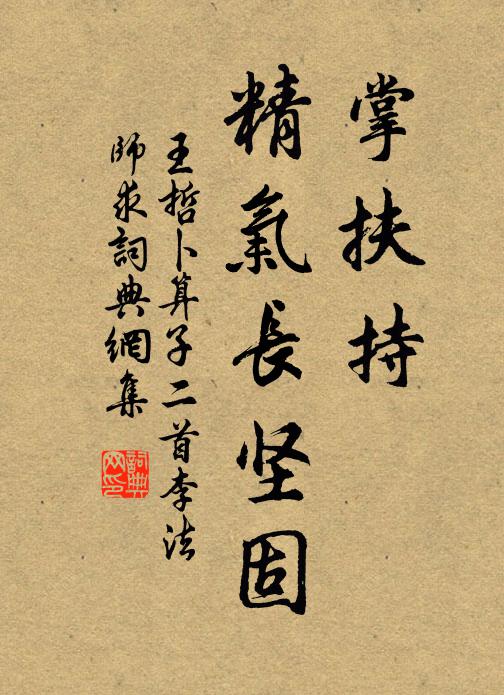 掌扶持
精氣長坚固
王哲卜算子二首李法
師求詞典網集
詞典
网印